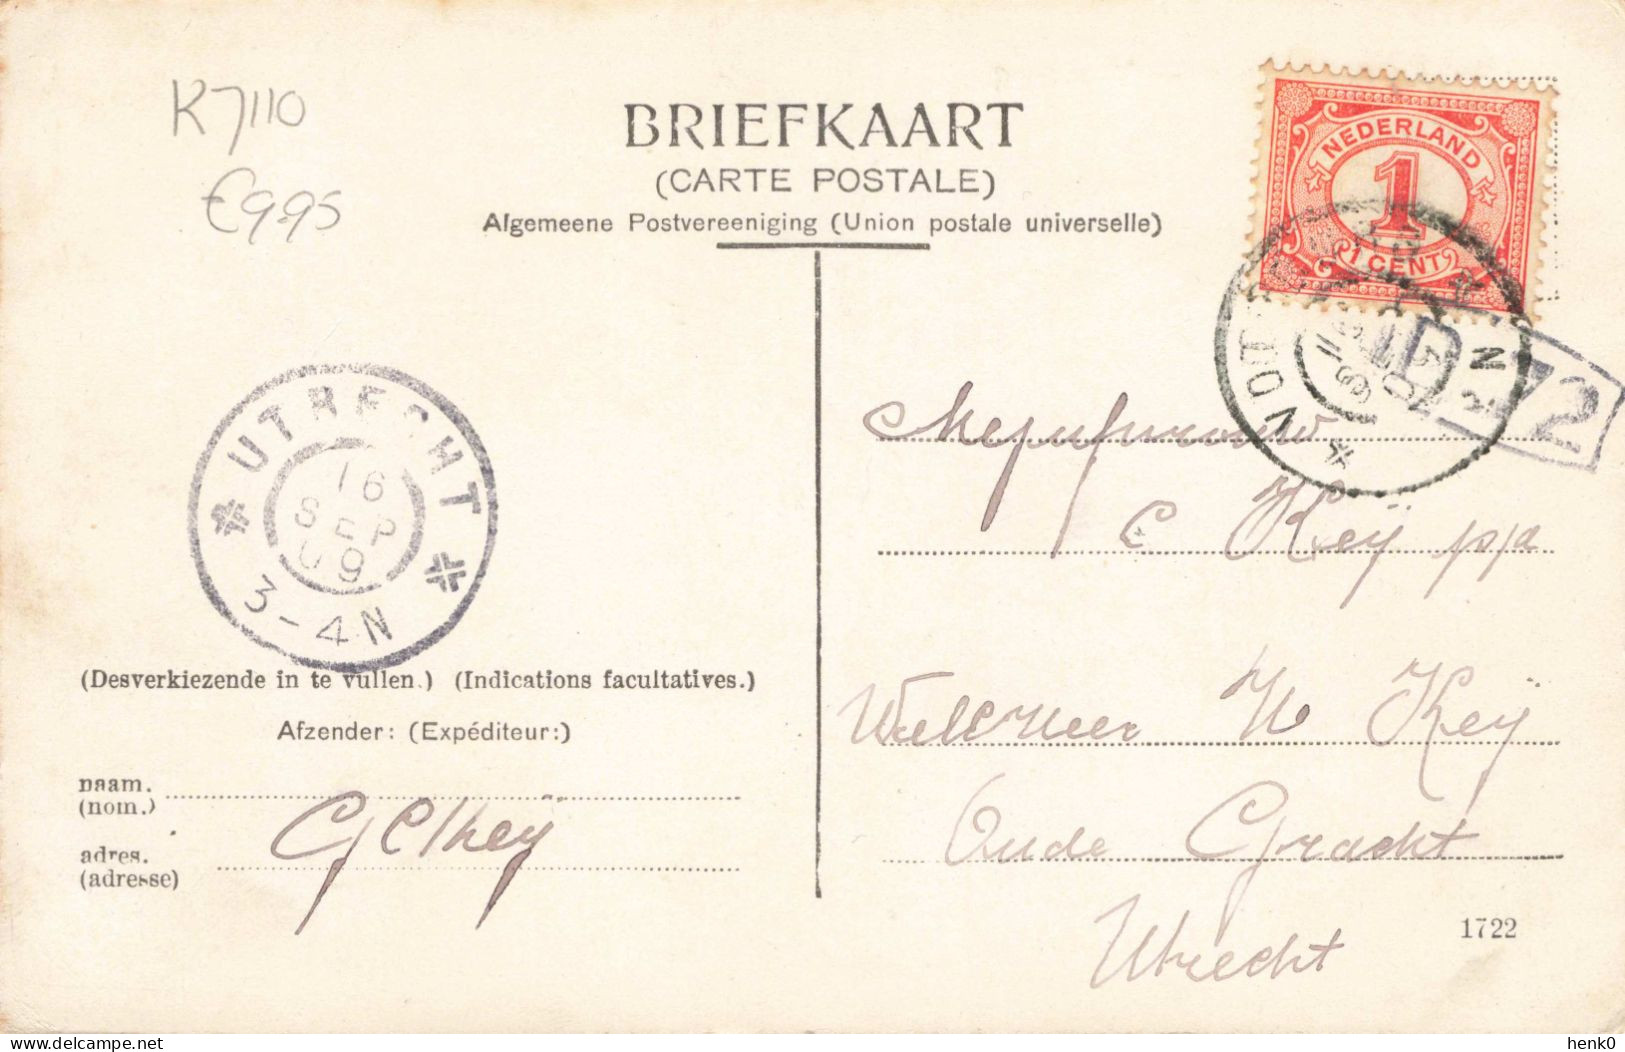 K7110
€9.95
BRIEFKAART
(CARTE POSTALE)
Algemeene Postvereeniging (Union postale universelle)
NEDERLAND
1
1 CENT
72
UTRECHT
16
SEP
09
3-4N
Mejufvrouw
C Keij p/a
Welmeer H Keij
Oude Gracht
Utrecht
(Desverkiezende in te vullen.) (Indications facultatives.)
Afzender: (Expéditeur:)
naam.
(nom.)
adres.
(adresse)
1722
www.delcampe.net
henk0